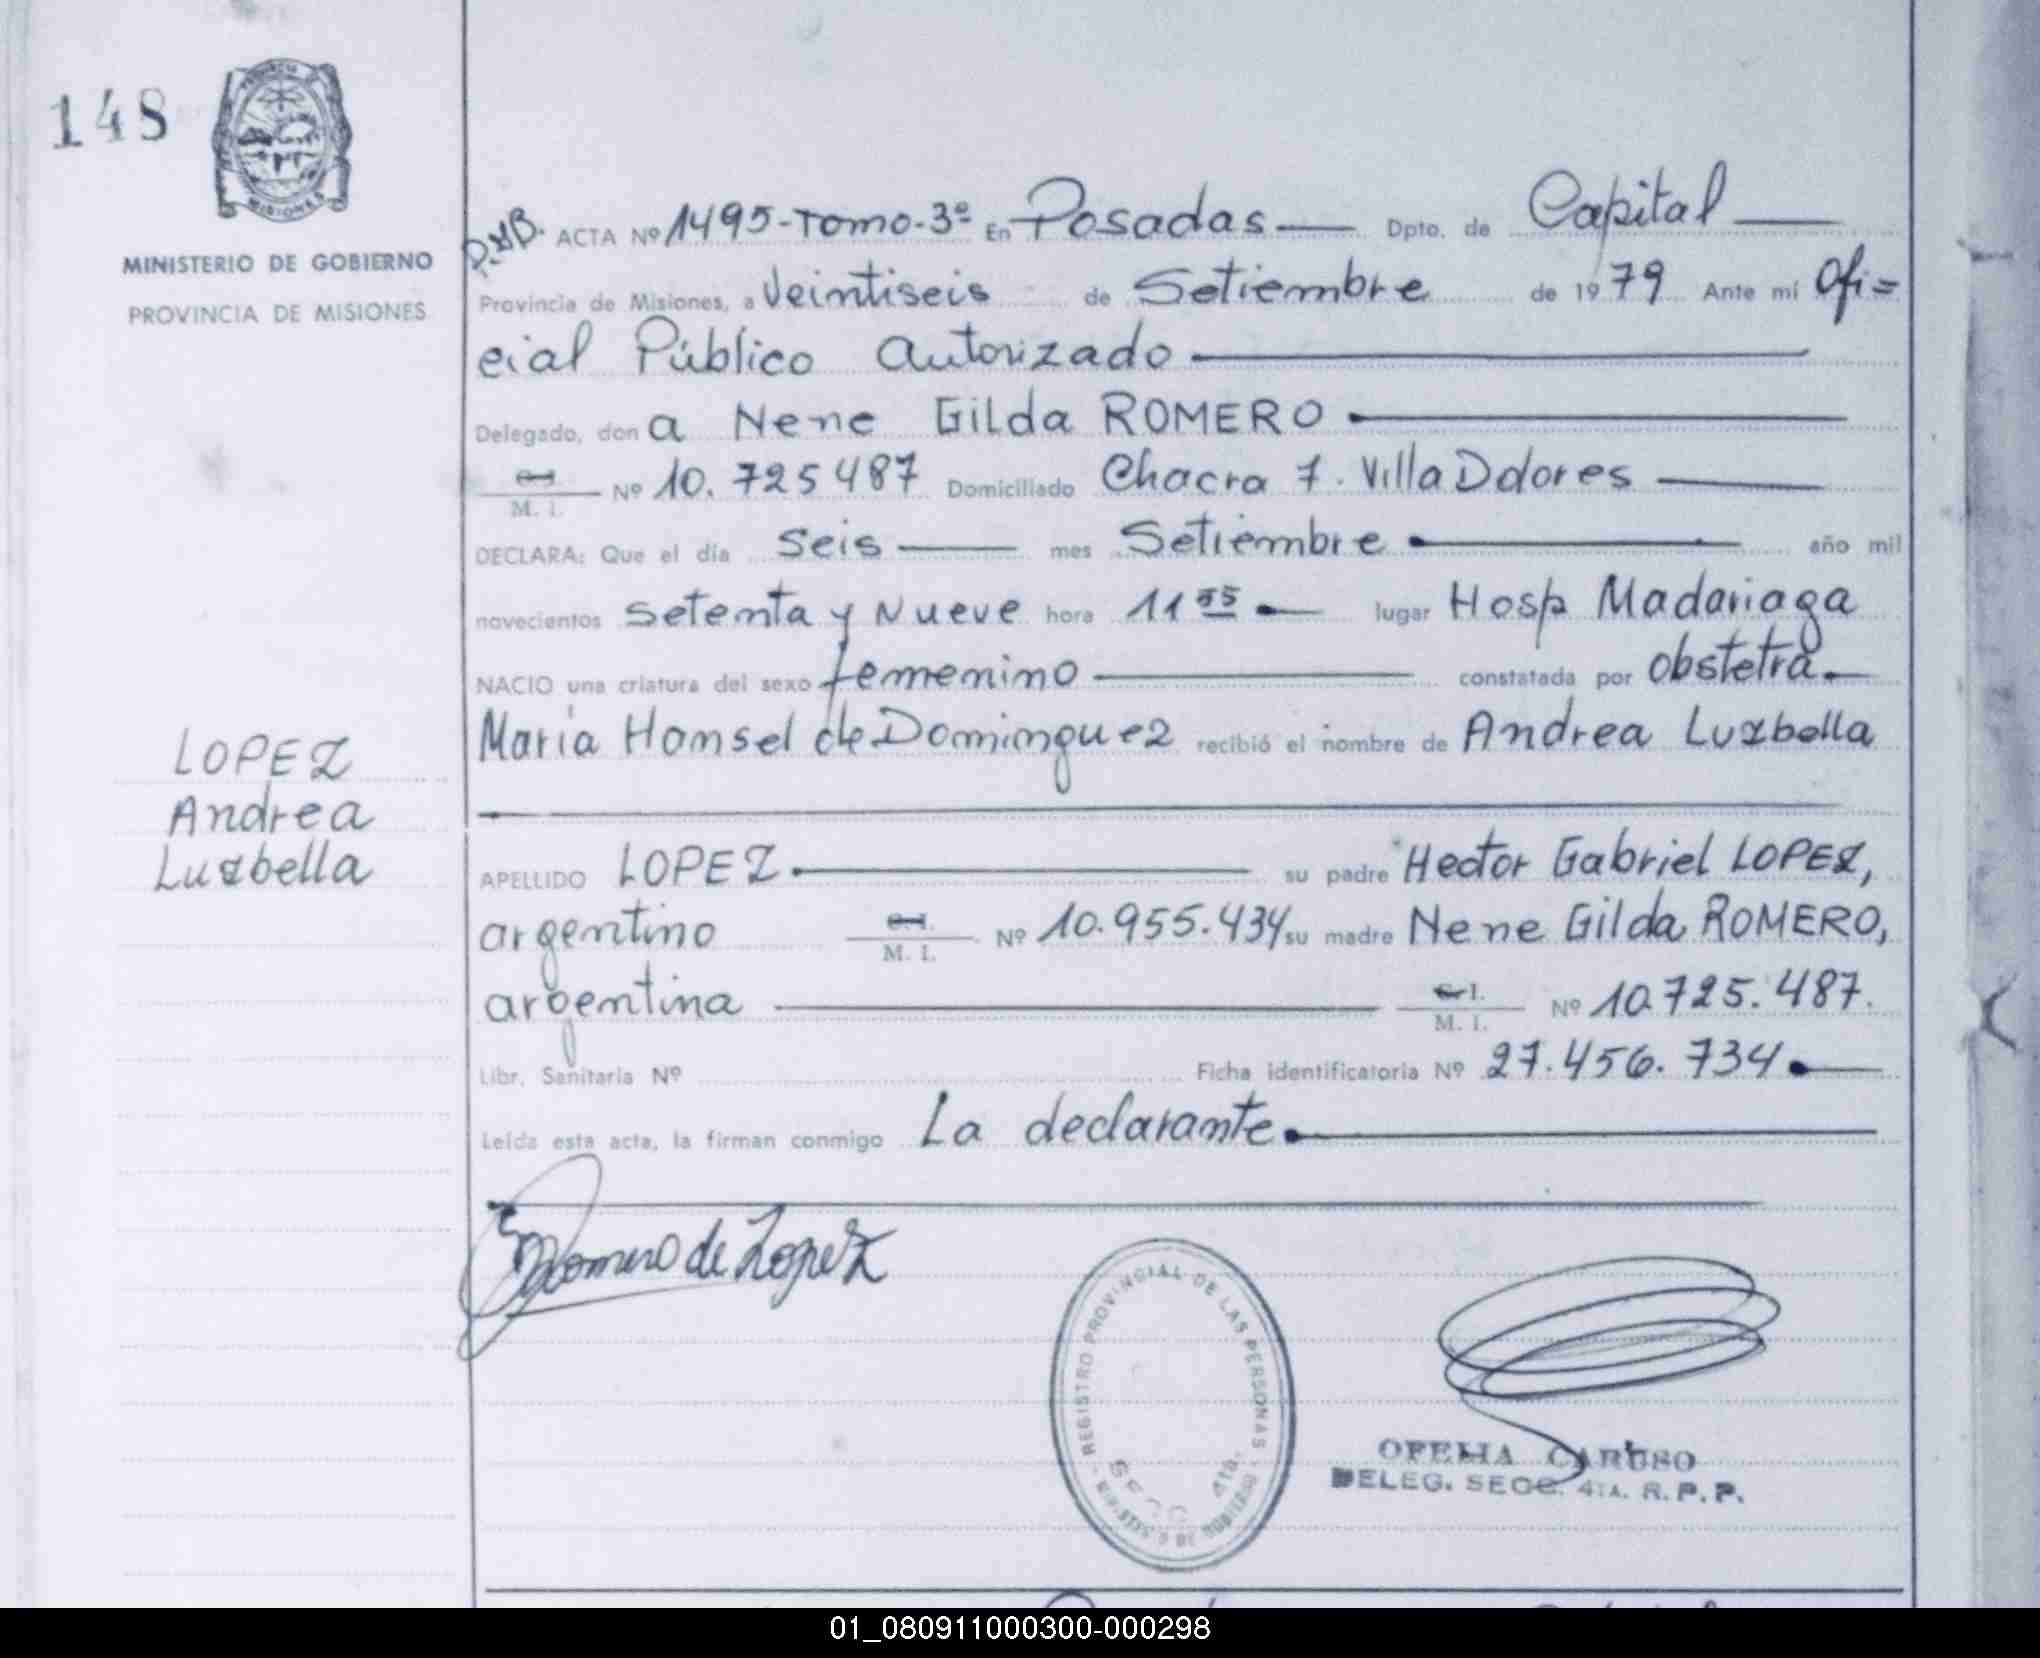 148
PROVINCIA DE
MISIONES
MINISTERIO DE GOBIERNO
PROVINCIA DE MISIONES
ACTA Nº 1495-Tomo-3º En Posadas Dpto. de Capital
Provincia de Misiones, a Veintiseis de Setiembre de 1979 Ante mí Ofi=
cial Público Autorizado
Delegado, don a Nene Gilda ROMERO
M. I. Nº 10.725487 Domiciliado Chacra 7. Villa Dolores
DECLARA: Que el día seis mes Setiembre año mil
novecientos setenta y Nueve hora 11 55 lugar Hosp Madariaga
NACIO una criatura del sexo femenino constatada por obstetra
María Homsel de Dominguez recibió el nombre de Andrea Luzbella
LOPEZ
Andrea
Luzbella
APELLIDO LOPEZ su padre Hector Gabriel LOPEZ,
argentino C.I. M. I. Nº 10.955.434 su madre Nene Gilda ROMERO,
argentina C.I. M. I. Nº 10.725.487.
Libr. Sanitaria Nº Ficha identificatoria Nº 27.456.734
Leída esta acta, la firman conmigo La declarante
Romero de Lopez
REGISTRO PROVINCIAL DE LAS PERSONAS
SECC 4ta.
MINISTERIO DE GOBIERNO
OFELIA CARUSO
DELEG. SECC. 4TA. R.P.P.
01_080911000300-000298